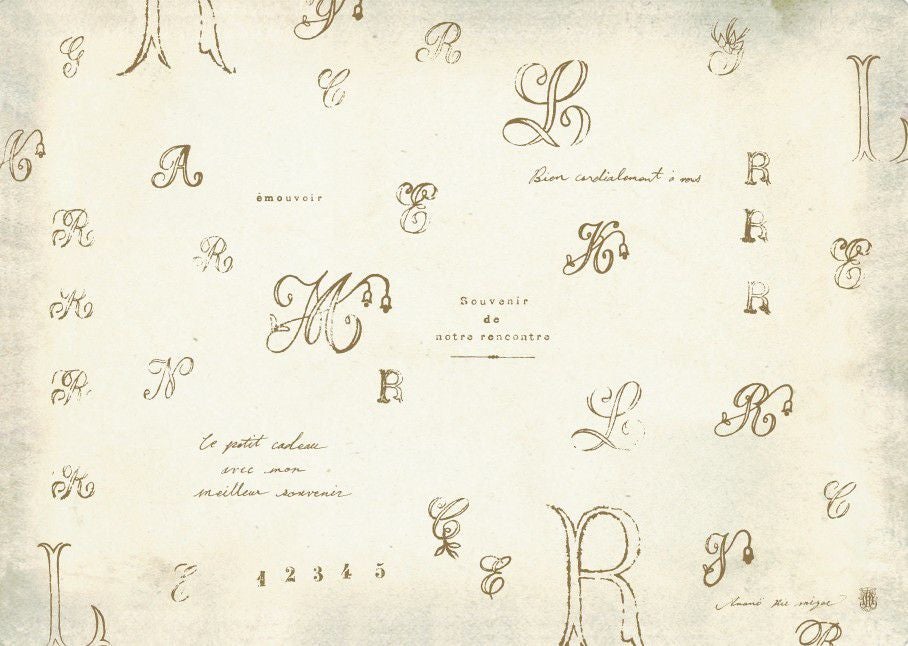 R
G
C
L
L
A
Bien cordialement à vous
R
émouvoir
E
R
R
R
K
E
M
Souvenir
de
notre rencontre
R
R
N
R
L
R
Le petit cadeau
avec mon
meilleur souvenir
C
L
R
E
1 2 3 4 5
E
R